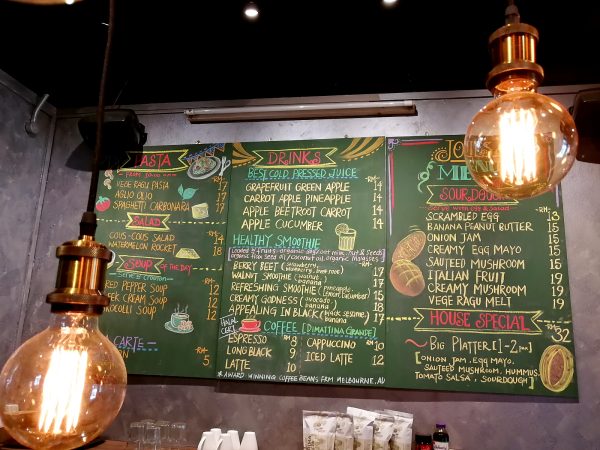 PASTA
-RM-
VEGE RAGU PASTA 17
AGLIO OLIO 17
SPAGHETTI CARBONARA 17
SALAD
COUS-COUS SALAD 14
WATERMELON ROCKET 18
SOUP OF THE DAY
Serve w Crouton
RED PEPPER SOUP 12
SOUP 12
BROCCOLI SOUP 12
CARTE
-RM-
5
DRINKS
BEST COLD PRESSED JUICE
-RM-
GRAPEFRUIT GREEN APPLE 14
CARROT APPLE PINEAPPLE 14
APPLE BEETROOT CARROT 14
APPLE CUCUMBER 14
HEALTHY SMOOTHIE
-RM-
BERRY BEET (strawberry, blueberry, beetroot) 17
WALNUT SMOOTHIE (walnut, banana) 17
REFRESHING SMOOTHIE (pineapple, lemon, cucumber) 15
CREAMY GODNESS (avocado, banana) 18
APPEALING IN BLACK (black sesame, banana) 17
COFFEE [DIMATTINA GRANDE]
ESPRESSO 8
LONG BLACK 9
LATTE 10
CAPPUCCINO 10
ICED LATTE 12
* AWARD WINNING COFFEE BEANS FRM MELBOURNE, AU
SOURDOUGH
Serve with Egg & Salad
-RM-
SCRAMBLED EGG 13
BANANA PEANUT BUTTER 15
ONION JAM 15
CREAMY EGG MAYO 15
SAUTEED MUSHROOM 15
ITALIAN FRUIT 19
CREAMY MUSHROOM 19
VEGE RAGU MELT 19
HOUSE SPECIAL
-RM-
32
~ BIG PLATTER [1-2 pax]
[ONION JAM, EGG MAYO,
SAUTEED MUSHROOM, HUMMUS,
TOMATO SALSA, SOURDOUGH]